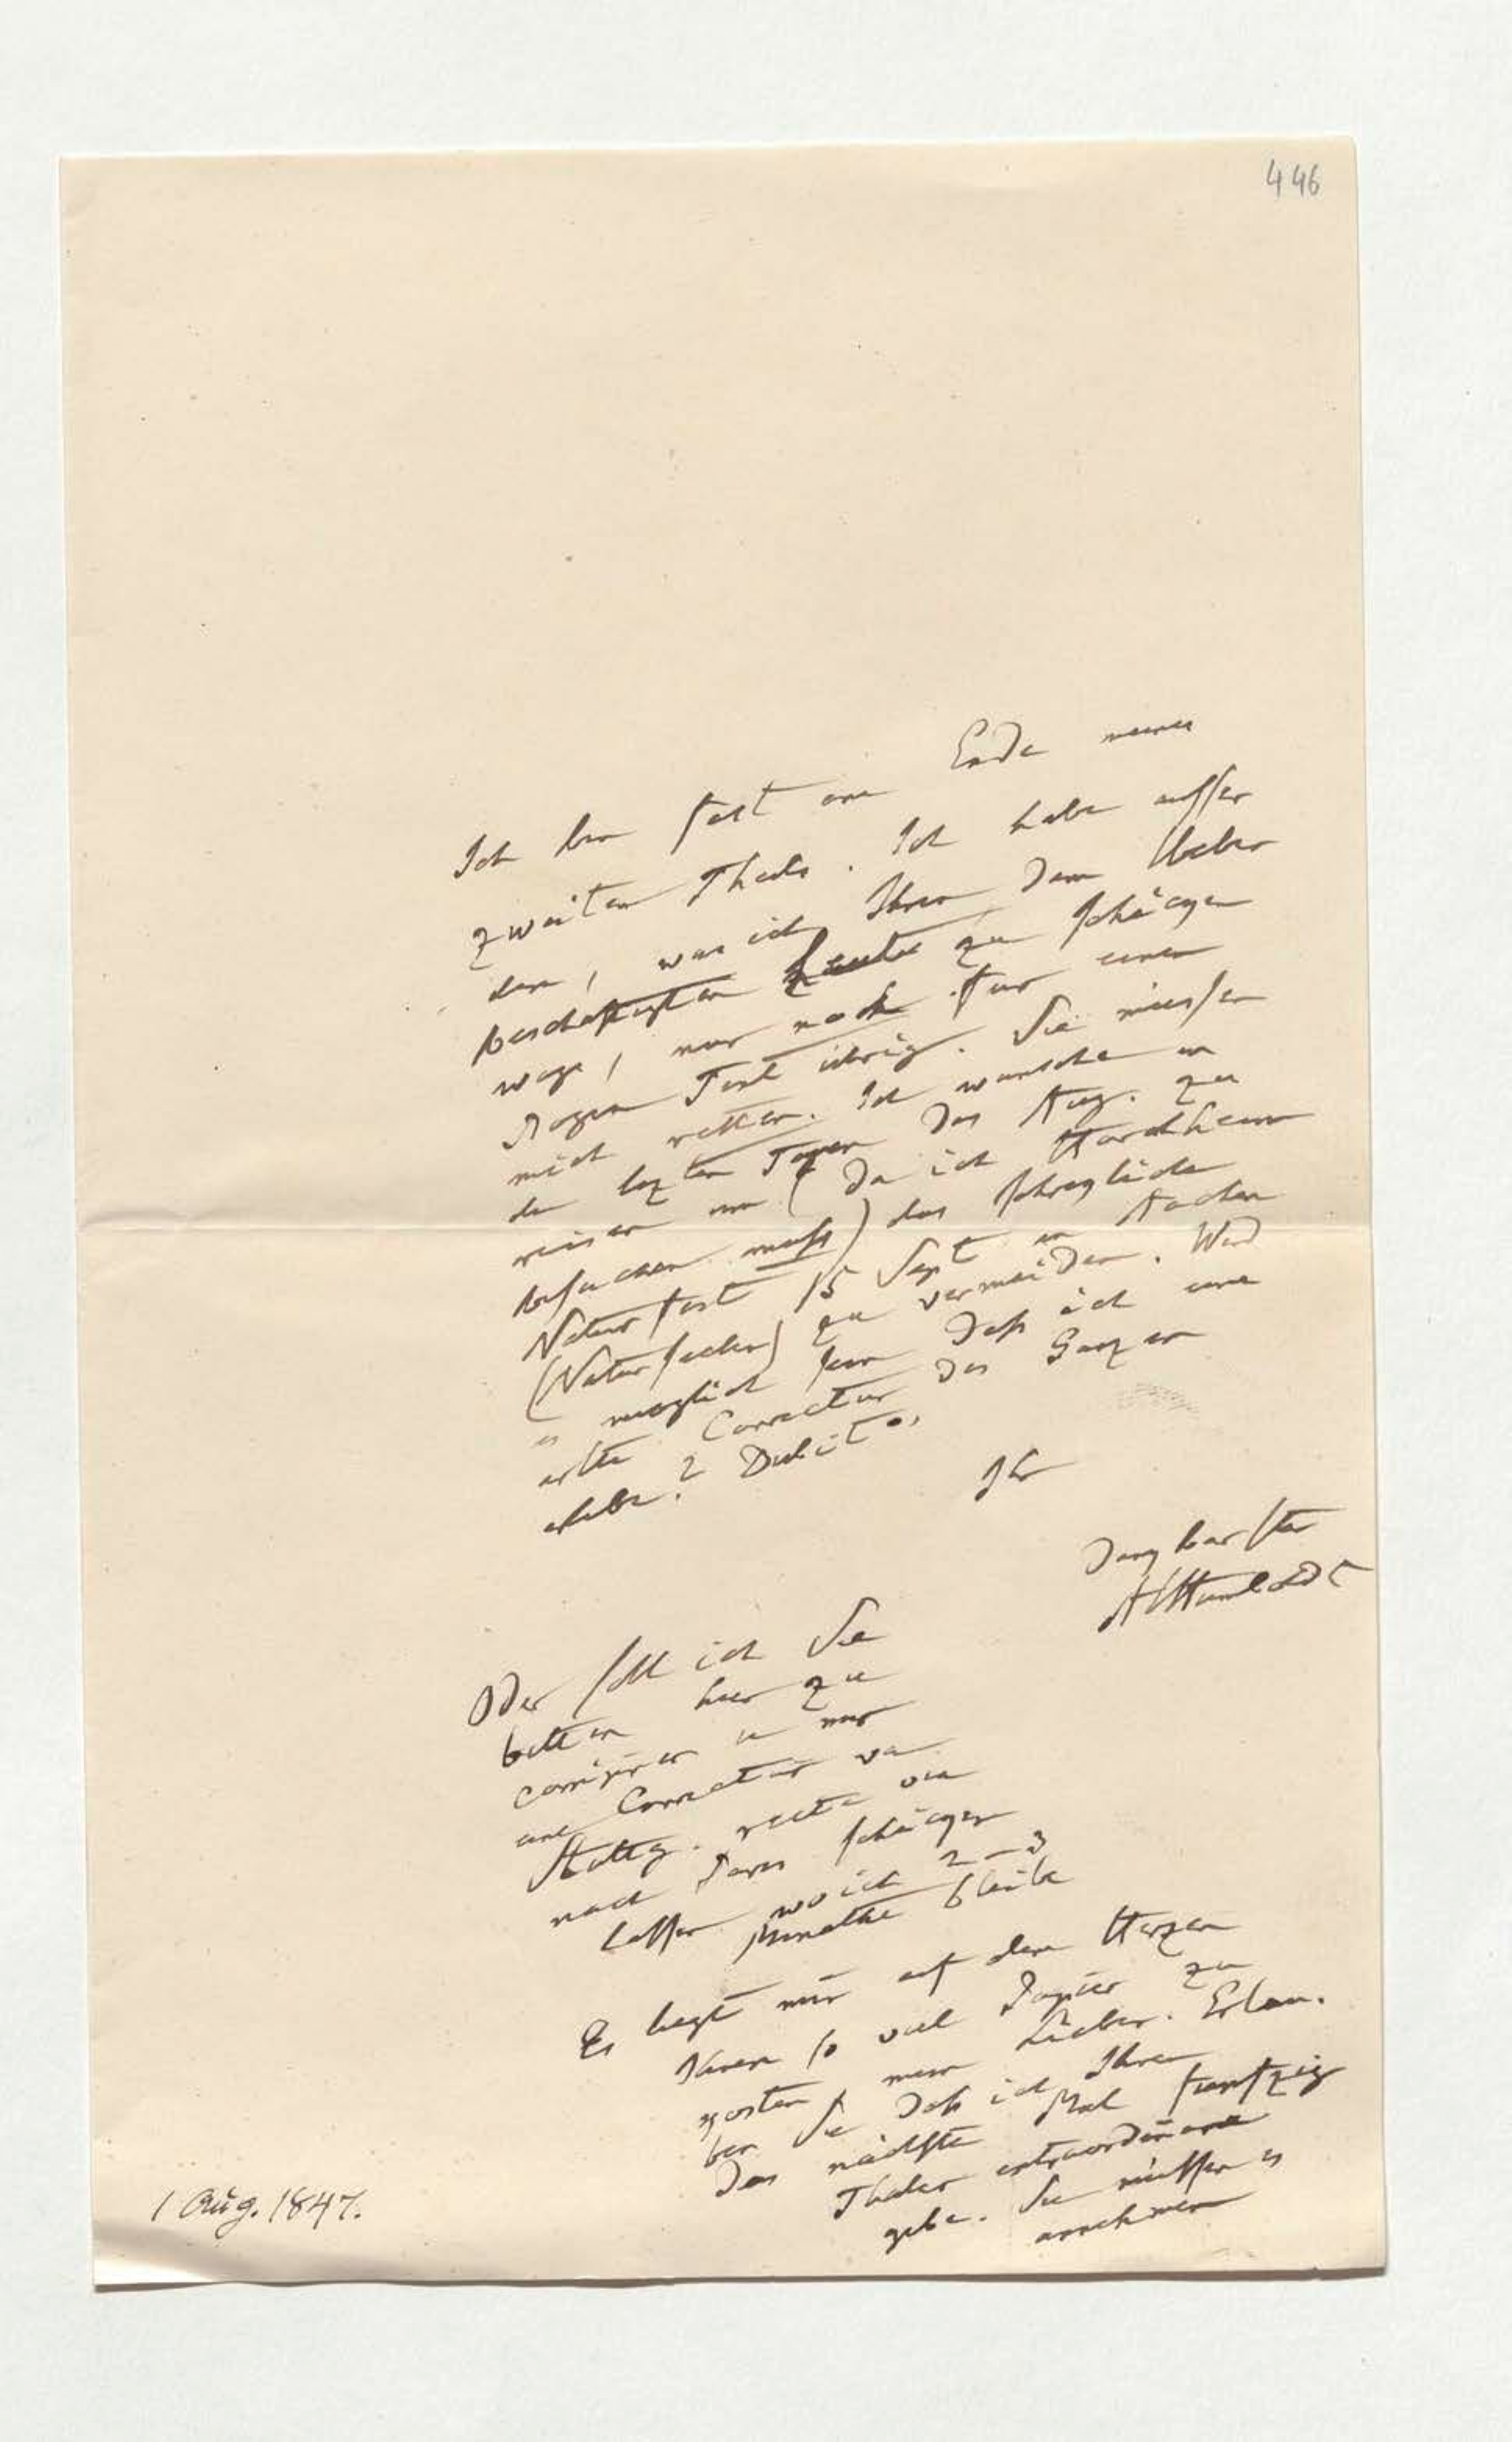 446
Ich bin fast am Ende meines
zweiten Theils. Ich habe ausser
dem, was ich Ihnen dem Ueber
beschäftigten heute zu schicken
wage, nur noch für einen
Bogen Text übrig. Sie müssen
mich retten. Ich wünsche in
den lezten Tagen des Aug. zu
reisen um (da ich Hardheim
besuchen muß) das schreckliche
Naturfest 15 Sept in Aachen
(Natur) zu vermeiden. Wird
es möglich sein daß ich eine
erste Correctur des Ganzen
erlebe? Dubito.
Ihr
dankbarster
AlHumboldt
Oder soll ich Sie
bitten hier zu
corrigiren u mir
eine Correctur von
Stuttg. recta
nach Paris schicken
lassen wo ich 2–3
Monathe bleibe
Es liegt mir auf dem Herzen
Ihnen so viel Papier zu
kosten, mein Lieber. Erlau-
ben Sie daß ich Ihnen
das nächste Mal funfzig
Thaler extraordinaire
gebe. Sie müssen es
annehmen
1 Aug. 1847.